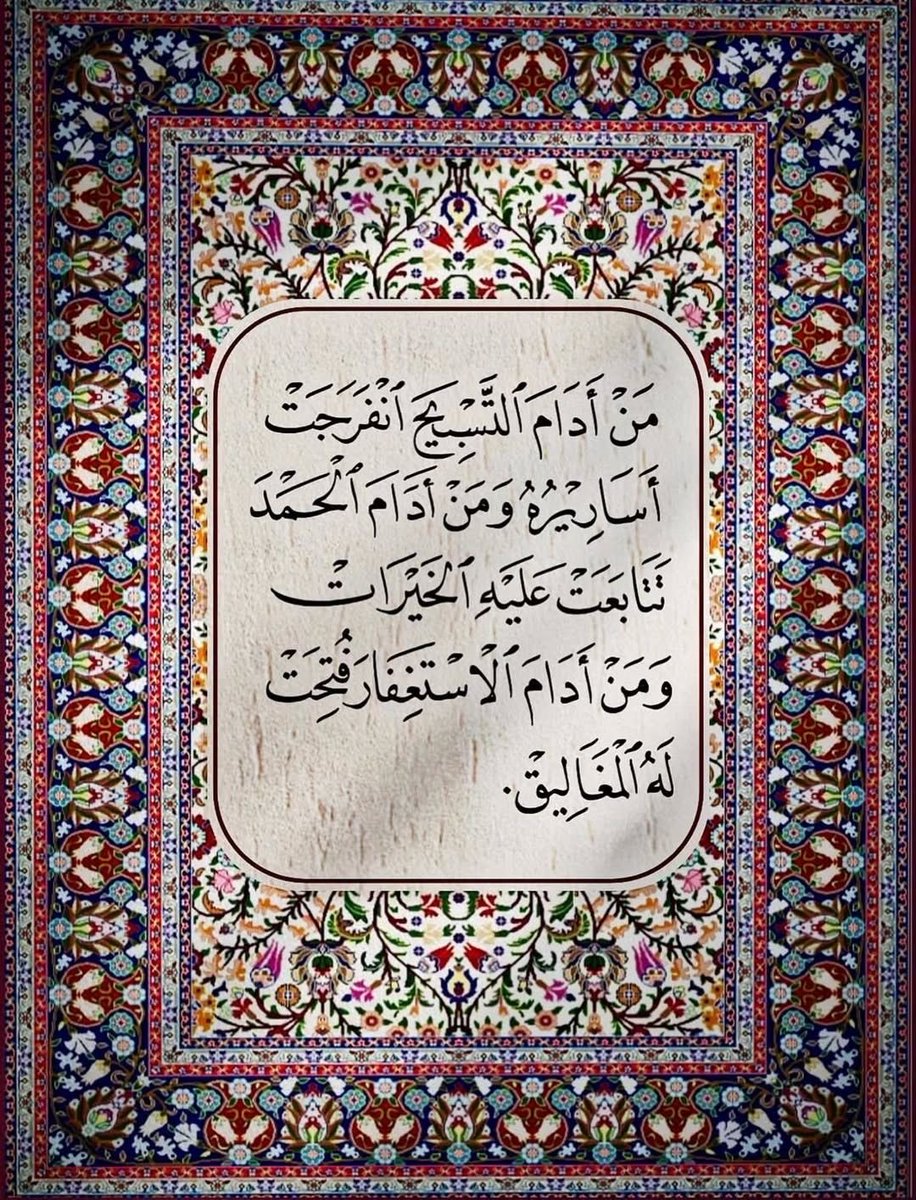 مَنْ أَدَامَ ٱلتَّسْبِيحَ ٱنْفَرَجَتْ
أَسَارِيْرُهُ وَمَنْ أَدَامَ ٱلْحَمْدَ
تَتَابَعَتْ عَلَيْهِ ٱلْخَيْرَاتْ
وَمَنْ أَدَامَ ٱلْاسْتَغِفَارَ فُتِحَتْ
لَهُ ٱلْمَغَالِيقْ.